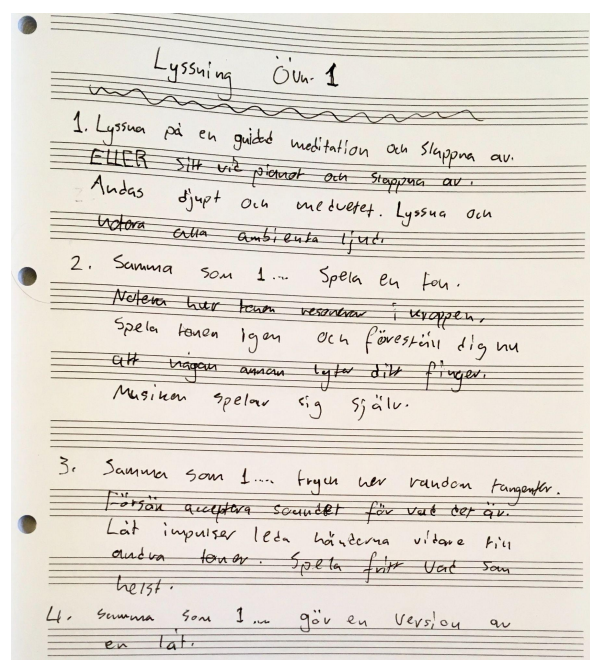 Lyssning Övn. 1
1. Lyssna på en guided meditation och slappna av.
ELLER sitt vid pianot och slappna av.
Andas djupt och medvetet. Lyssna och
notera alla ambienta ljud.
2. Samma som 1... Spela en ton.
Notera hur tonen resonerar i kroppen.
Spela tonen igen och föreställ dig nu
att någon annan lyfter ditt finger.
Musiken spelar sig själv.
3. Samma som 1.... tryck ner random tangenter.
Försök acceptera soundet för vad det är.
Låt impulser leda händerna vidare till
andra toner. Spela fritt vad som
helst.
4. Samma som 1... gör en version av
en låt.